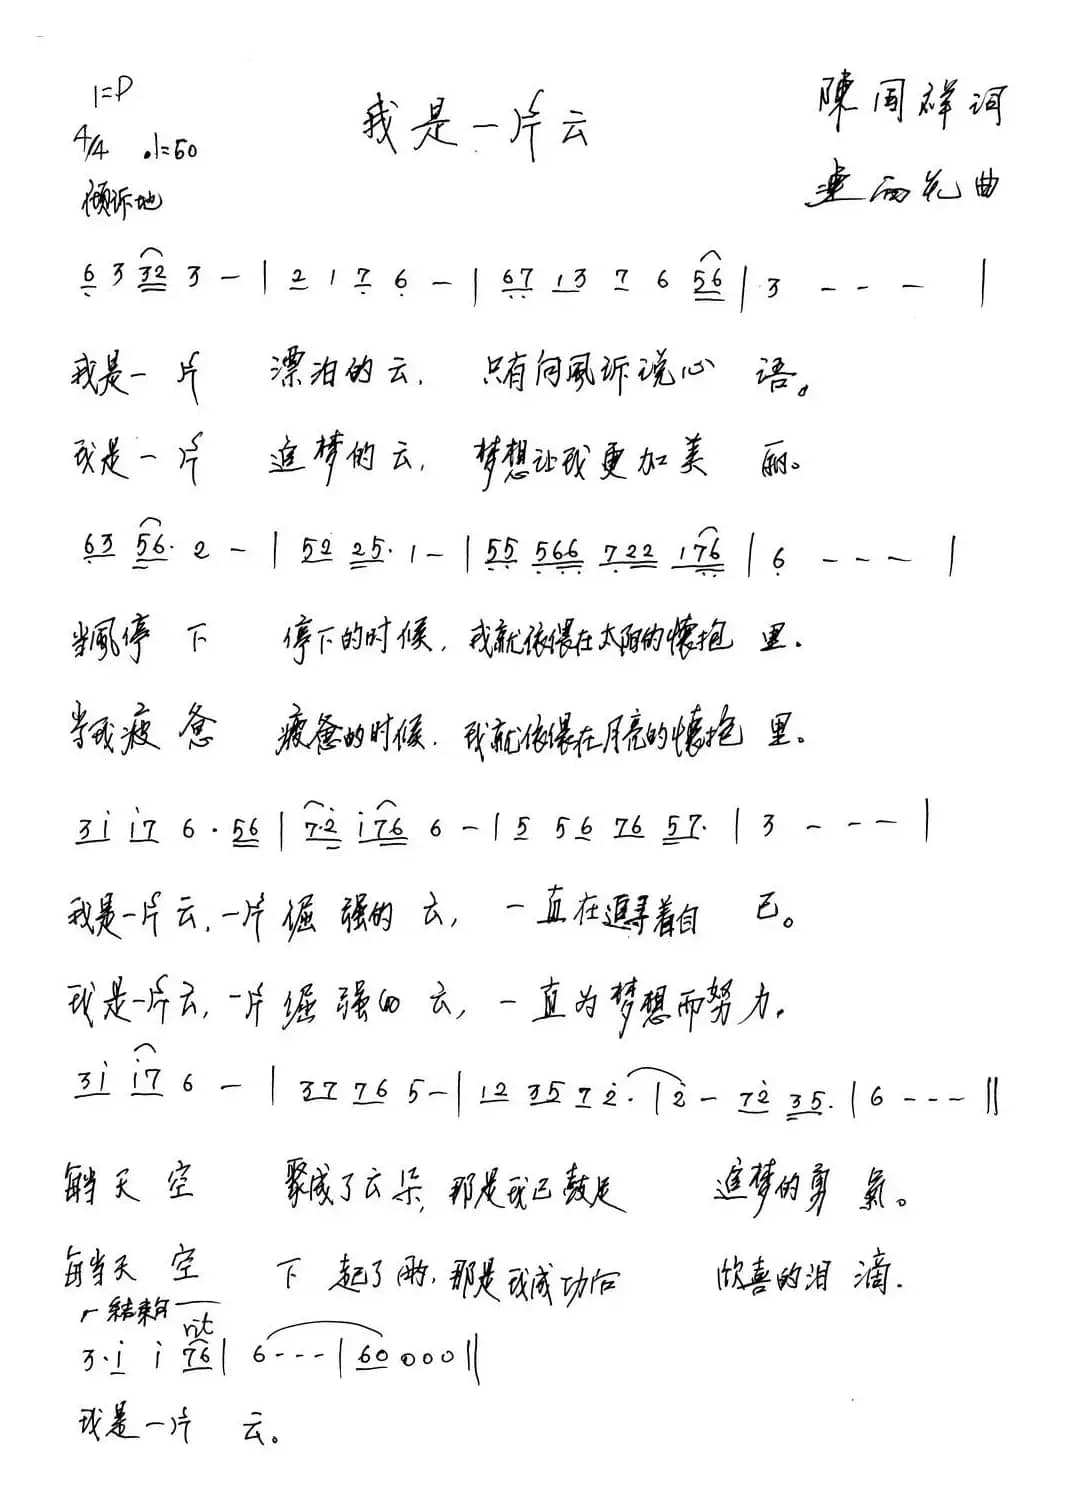 1=D
我是一片云
陳国祥词
4/4 ♩=50
倾诉地
雨花曲
6 3 32 3 - | 2 1 7 6 - | 67 13 7 6 56 | 3 - - - |
我是一片 漂泊的云, 只有向風诉说心 语。
我是一片 追梦的云, 梦想让我更加美 丽。
63 56. 2 - | 52 25. 1 - | 55 566 722 176 | 6 - - - |
当風停 下 停下的时候, 我就依偎在太阳的懷抱 里.
当我疲 惫 疲惫的时候. 我就依偎在月亮的懷抱 里。
3i i7 6 . 56 | 7.2 i76 6 - | 5 56 76 57. | 3 - - - |
我是一片云, 一片倔 强的 云, 一直在追寻着自 己。
我是一片云, 一片倔 强的 云, 一直为梦想而努力.
3i i7 6 - | 37 76 5 - | 12 35 7 2. | 2 - 72 35. | 6 - - - ‖
每当天 空 聚成了云朵, 那是我已鼓足 追梦的勇 氣。
每当天 空 下 起了雨, 那是我成功后 欣喜的泪 滴.
结束句 rit
3. i i 76 | 6 - - - | 60 0 0 0 ‖
我是一片 云。